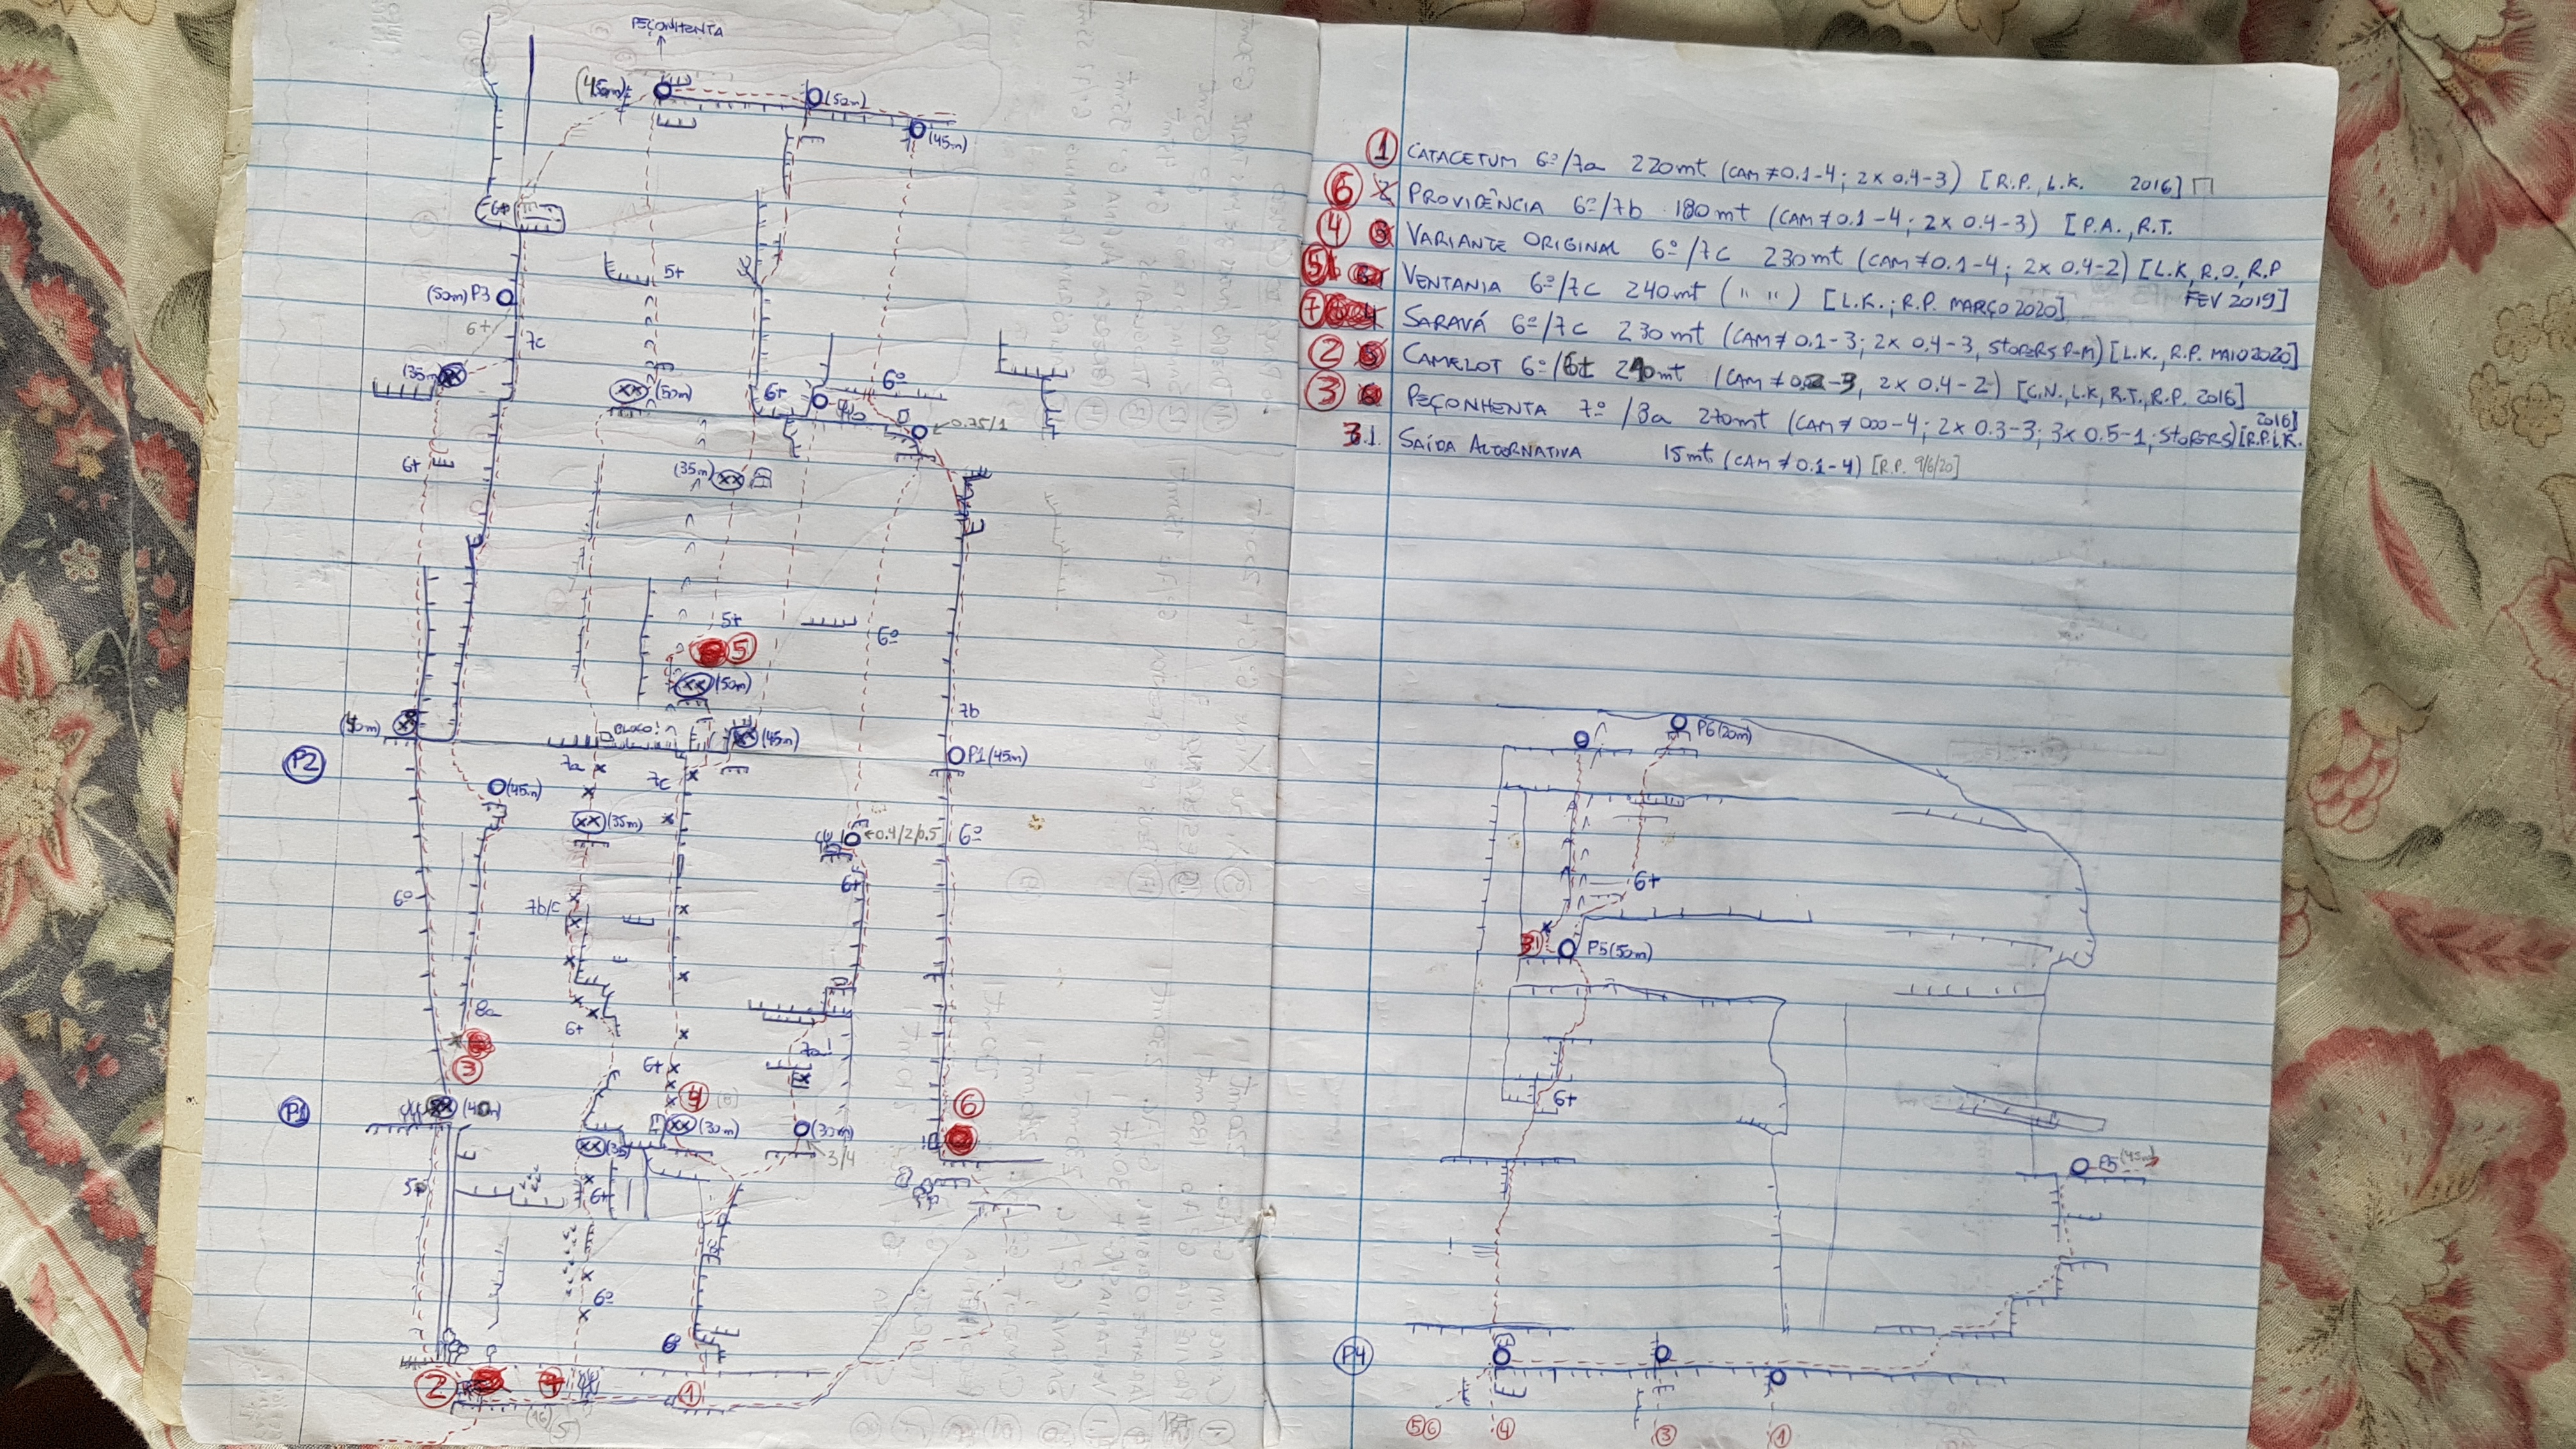 PEÇONHENTA
(45m)
(50m)
(45m)
6+
5+
(50m) P3
6+
7c
(35m)
(50m)
6+
6º
0.75/1
6+
(35m)
5+
5
6º
(50m)
7b
(45m)
BLOCO!
P1 (45m)
P2
7a
7c
(45m)
(35m)
0.4/2/0.5
6º
6+
6º
7b/c
8a
6+
7a!
3
6+
4
6
P1
(40m)
(30m)
(30m)
3/4
6+
6º
6º
2
7
1
1 CATACETUM 6º/7a 220mt (CAM≠0.1-4; 2x 0.4-3) [R.P., L.K. 2016]
6 PROVIDÊNCIA 6º/7b 180mt (CAM≠0.1-4; 2x 0.4-3) [P.A., R.T.
4 VARIANTE ORIGINAL 6º/7c 230mt (CAM≠0.1-4; 2x 0.4-2) [L.K, R.O, R.P
FEV 2019]
5 VENTANIA 6º/7c 240mt (" ") [L.K.; R.P. MARÇO 2020]
7 SARAVÁ 6º/7c 230mt (CAM≠0.1-3; 2x 0.4-3, STOPERS P-M) [L.K., R.P. MAIO 2020]
2 CAMELOT 6º/6+ 240mt (CAM≠0.2-3, 2x 0.4-2) [C.N., L.K, R.T., R.P. 2016]
3 PEÇONHENTA 7º/8a 270mt (CAM≠000-4; 2x 0.3-3; 3x 0.5-1; STOPERS) [R.P.L.K.
2016]
3.1. SAÍDA ALTERNATIVA 15mt (CAM≠0.1-4) [R.P. 9/6/20]
P6 (20m)
6+
31
P5 (50m)
6+
P5 (45m)
P4
5 6
4
3
1